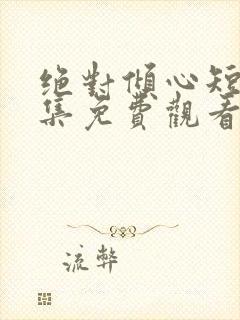 絕對傾心短
集免費觀看
流弊